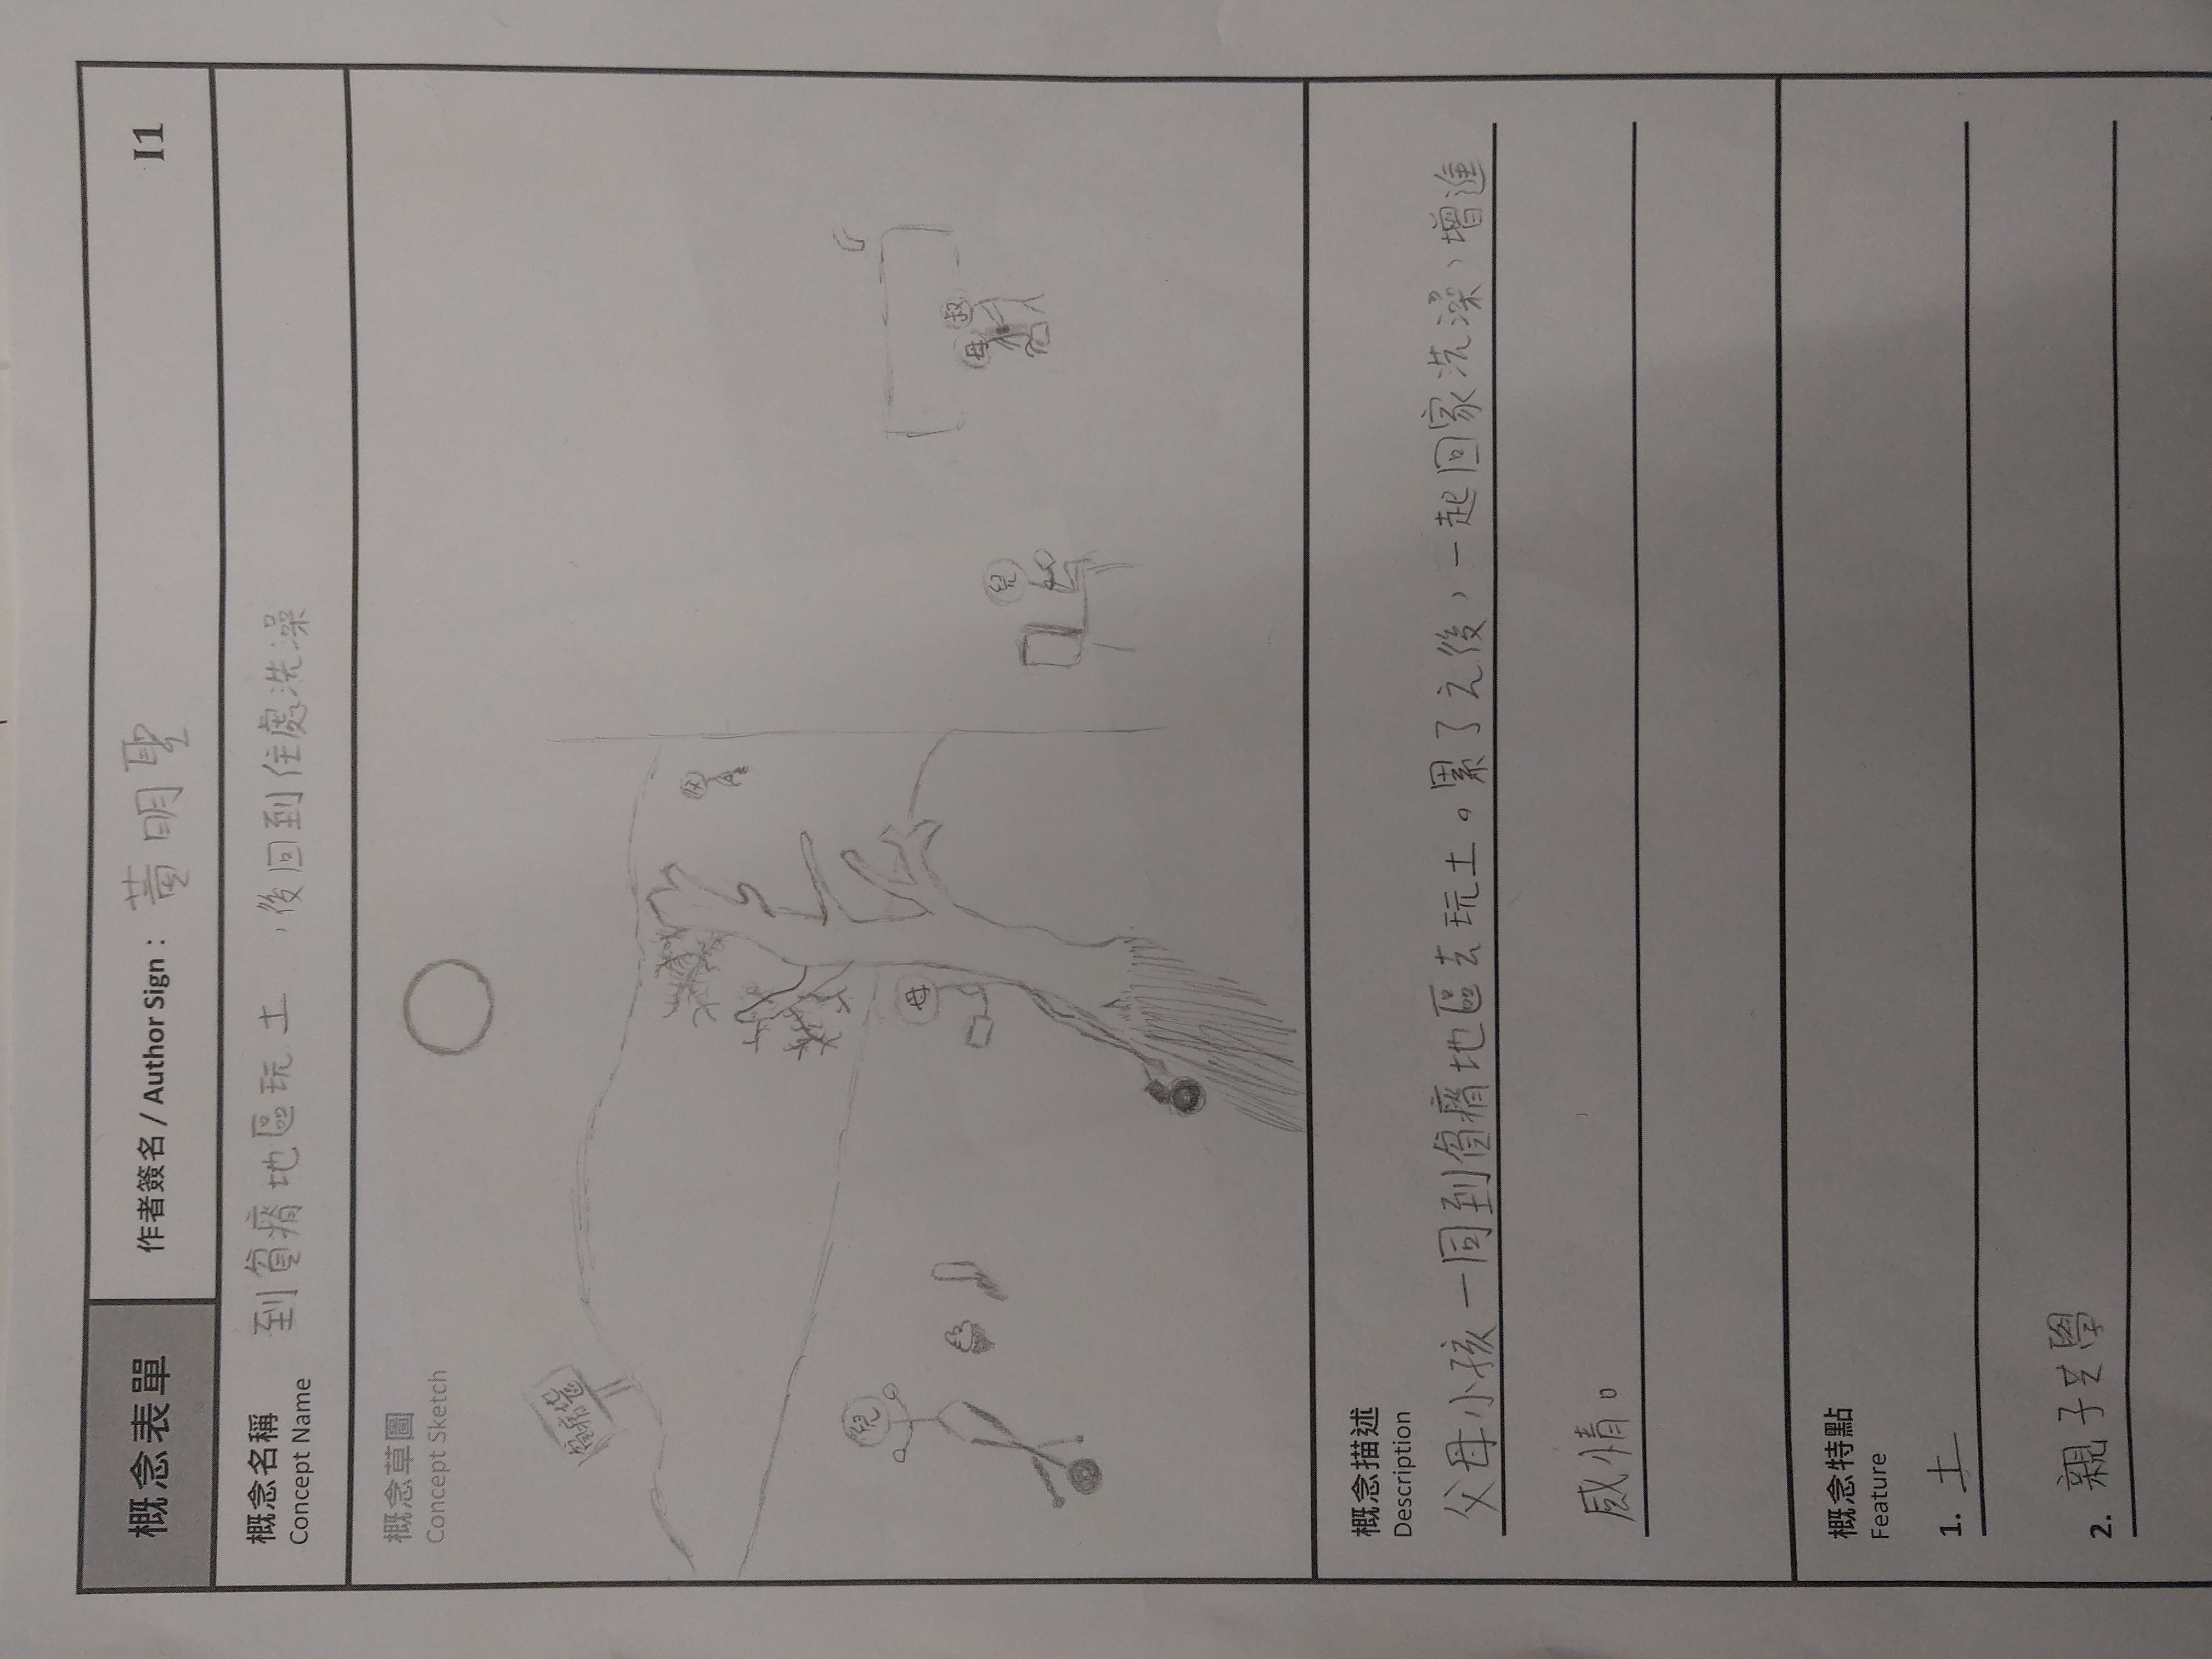 概念表單
作者簽名 / Author Sign : 黃明聖
I1
概念名稱
Concept Name
到貧瘠地區玩土 ,後回到住處洗澡
概念草圖
Concept Sketch
貧瘠地區
父
兒
母
兒
母
叔
概念描述
Description
父母小孩一同到貧瘠地區去玩土。累了之後,一起回家洗澡,增進
感情。
概念特點
Feature
1. 土
2. 親子共學